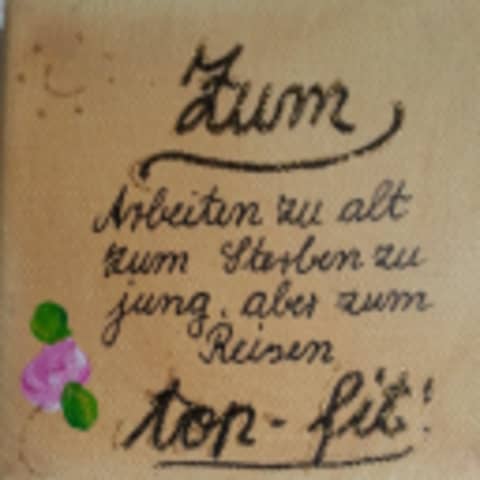 Zum
Arbeiten zu alt
zum Sterben zu
jung, aber zum
Reisen
top-fit!